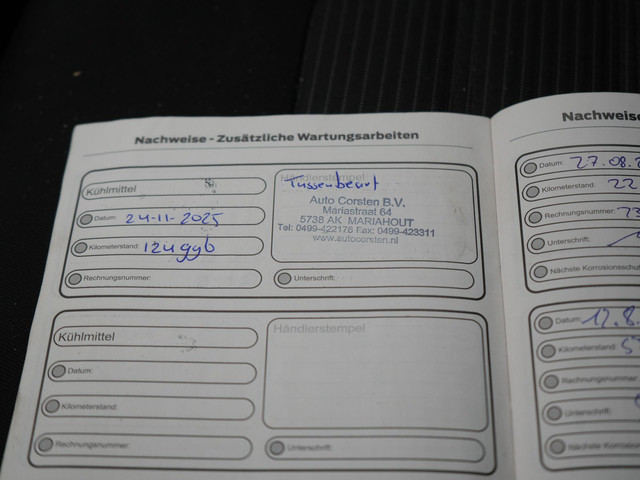 Nachweise - Zusätzliche Wartungsarbeiten
Kühlmittel
Datum: 24-11-2025
Kilometerstand:
Rechnungsnummer:
Händlerstempel
Tussenbeurt
Auto Corsten B.V.
Mariastraat 64
5738 AK MARIAHOUT
Tel: 0499-422178 Fax: 0499-423311
www.autocorsten.nl
Unterschrift:
Kühlmittel
Datum:
Kilometerstand:
Rechnungsnummer:
Händlerstempel
Unterschrift:
Datum: 27.08.
Kilometerstand: 22
Rechnungsnummer:
Unterschrift:
Datum: 12.8.
Kilometerstand:
Rechnungsnummer:
Unterschrift: